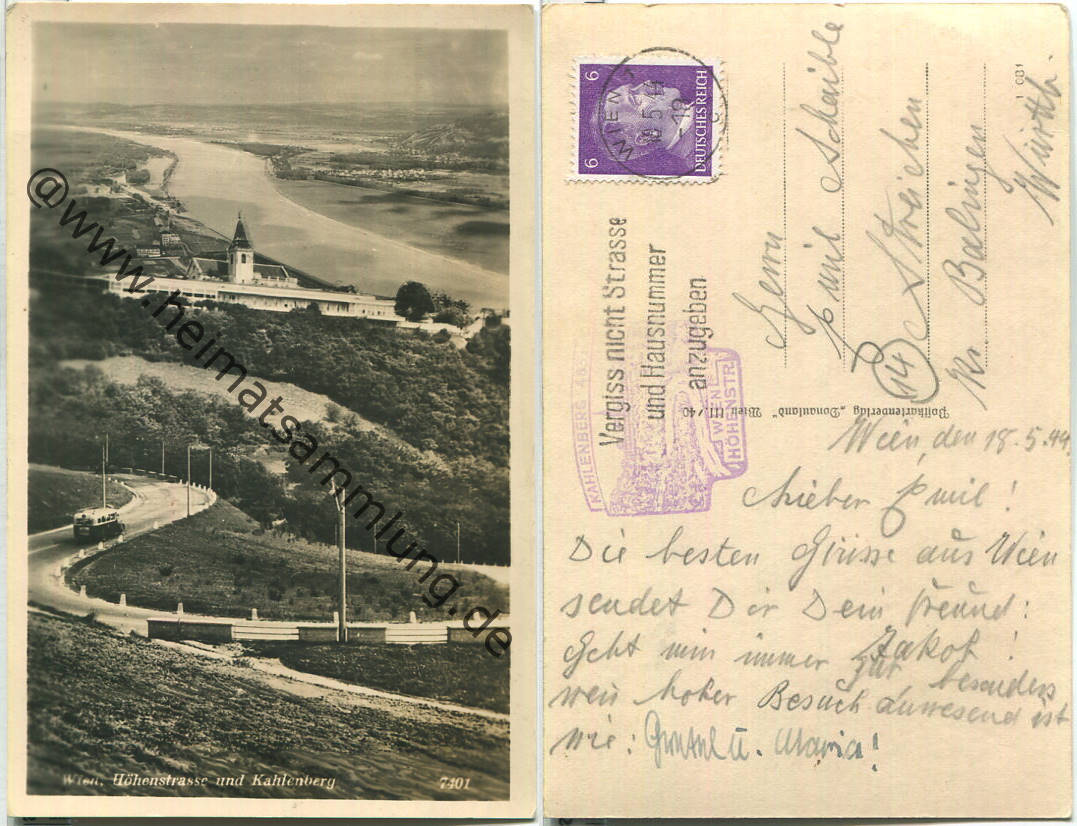 Wien, Höhenstrasse und Kahlenberg
7401
@www.heimatsammlung.de
6 6
DEUTSCHES REICH
WIEN
18.5.44
Vergiss nicht Strasse
und Hausnummer
anzugeben
KAHLENBERG 48
WIEN
HÖHENSTR
Postkartenverlag „Donauland" Wien III./40
Herrn
Emil Scheible
(14) Streichen
Kr. Balingen
Württb.
Wien, den 18.5.44.
Lieber Emil!
Die besten Grüsse aus Wien
sendet Dir Dein Freund:
Jakob!
Geht mir immer gut besonders
wen hoher Besuch Anwesend ist
wie: u. Maria!